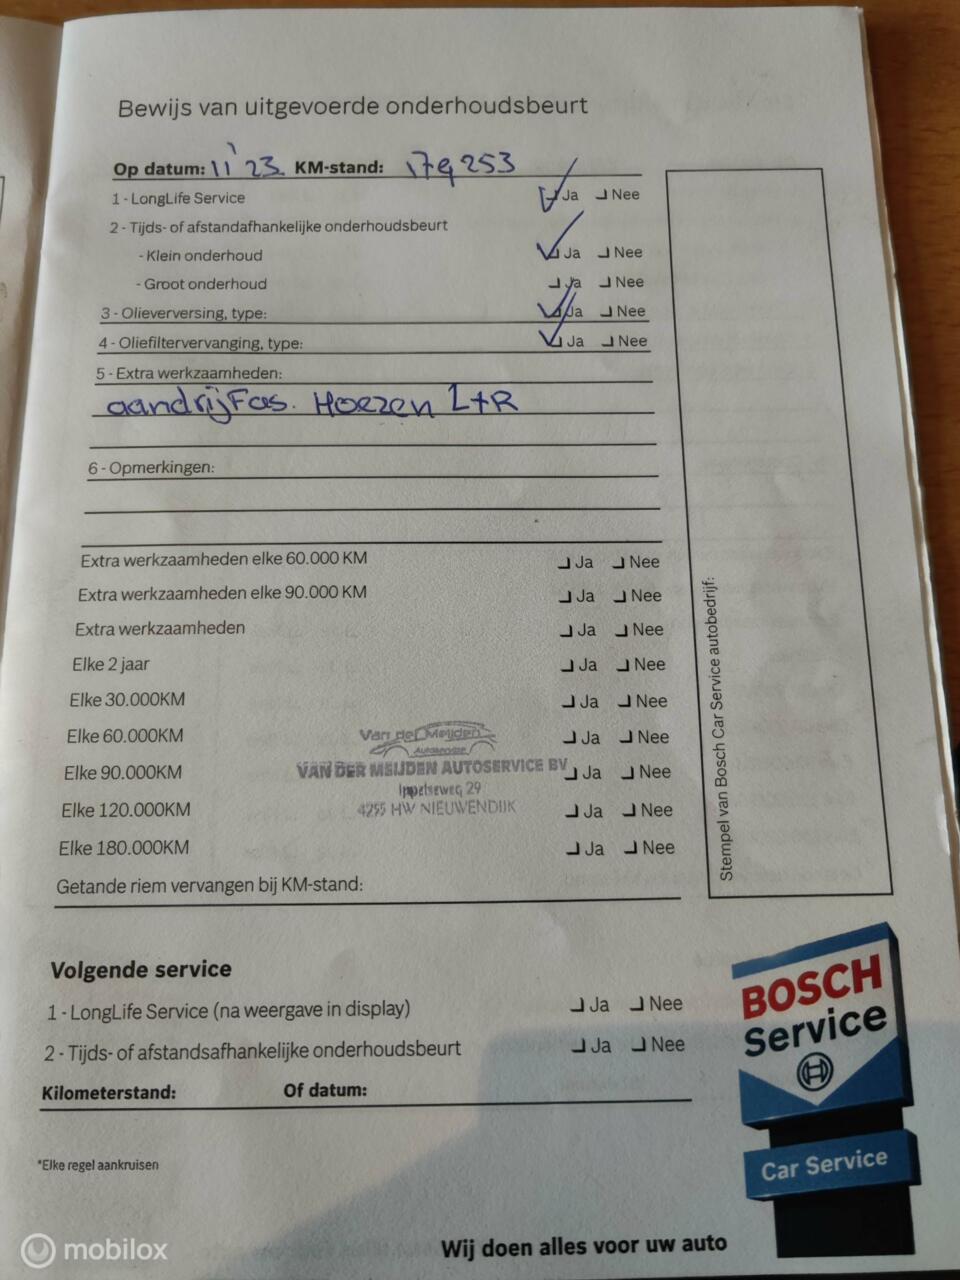 Bewijs van uitgevoerde onderhoudsbeurt
Op datum: 11'23. KM-stand: 179253
1 - LongLife Service Ja Nee
2 - Tijds- of afstandafhankelijke onderhoudsbeurt
- Klein onderhoud Ja Nee
- Groot onderhoud Ja Nee
3 - Olieverversing, type: Ja Nee
4 - Oliefiltervervanging, type: Ja Nee
5 - Extra werkzaamheden:
aandrijFas. Hoezen L+R
6 - Opmerkingen:
Extra werkzaamheden elke 60.000 KM Ja Nee
Extra werkzaamheden elke 90.000 KM Ja Nee
Extra werkzaamheden Ja Nee
Elke 2 jaar Ja Nee
Elke 30.000KM Ja Nee
Elke 60.000KM Ja Nee
Elke 90.000KM Ja Nee
Elke 120.000KM Ja Nee
Elke 180.000KM Ja Nee
Getande riem vervangen bij KM-stand:
Van der Meijden
Autoservice
VAN DER MEIJDEN AUTOSERVICE BV
Ippelseweg 29
4255 HW NIEUWENDIJK
Stempel van Bosch Car Service autobedrijf:
Volgende service
1 - LongLife Service (na weergave in display) Ja Nee
2 - Tijds- of afstandsafhankelijke onderhoudsbeurt Ja Nee
Kilometerstand: Of datum:
*Elke regel aankruisen
BOSCH
Service
Car Service
Wij doen alles voor uw auto
mobilox